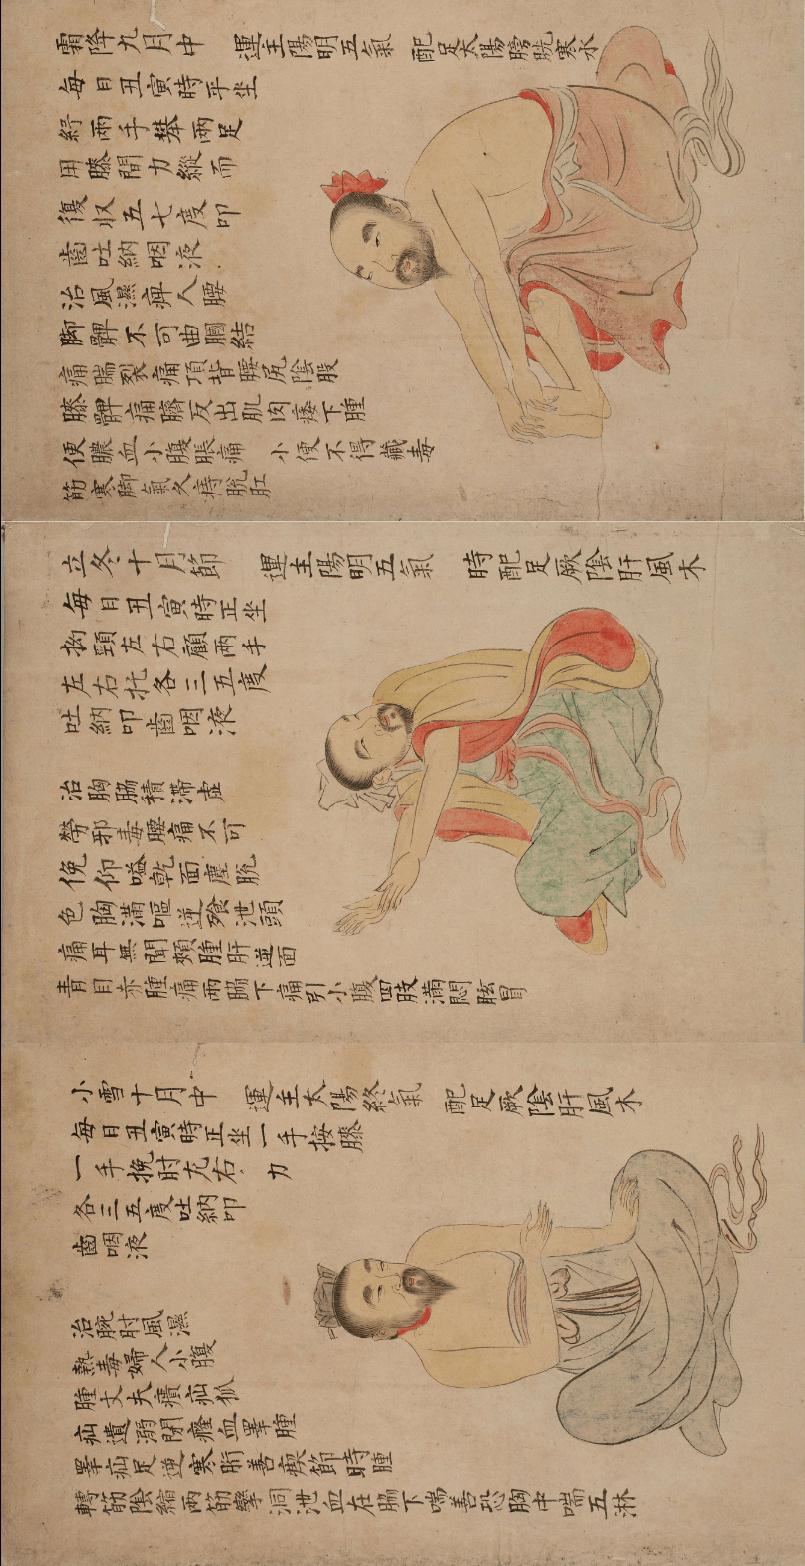 霜降九月中　運主陽明五氣　配足太陽膀胱寒水
每日丑寅時平坐
紓兩手攀兩足
用膝間力縱而
復収五七度叩
齒吐納咽液
治風濕痺人腰
脚髀不可曲膕結
痛腨裂痛項背腰尻陰股
膝髀痛臍反出肌肉痿下腫
便膿血小腹脹痛　小便不得藏毒
筋寒脚氣久痔脫肛
立冬十月節　運主陽明五氣　時配足厥陰肝風木
每日丑寅時正坐
拗頸左右顧兩手
左右托各三五度
吐納叩齒咽液
治胸脇積滯虛
勞邪毒腰痛不可
俛仰嗌乾面塵脫
色胸滿嘔逆飱泄頭
痛耳無聞頰腫肝逆面
青目赤腫痛兩脇下痛引小腹四肢滿悶眩冒
小雪十月中　運主太陽終氣　配足厥陰肝風木
每日丑寅時正坐一手按膝
一手挽肘左右　力
各三五度吐納叩
齒咽液
治腕肘風濕
熱毒婦人小腹
腫丈夫㿉疝狐
疝遺溺閉癃血睪腫
睪疝足逆寒胻善瘈節時腫
轉筋陰縮兩筋攣洞泄血在脇下喘善恐胸中喘五淋